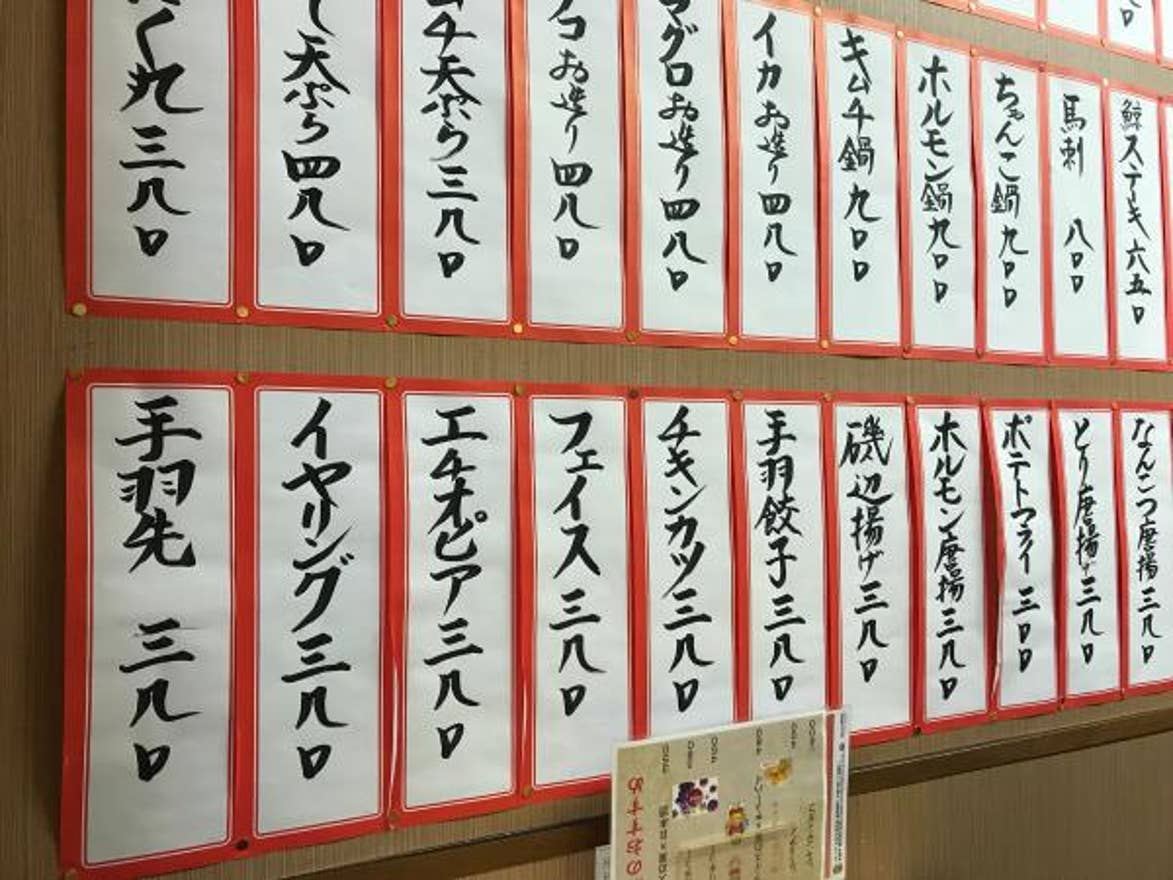 鯨ステーキ 六五〇
馬刺 八〇〇
ちゃんこ鍋 九〇〇
ホルモン鍋 九〇〇
キムチ鍋 九〇〇
イカお造り 四八〇
マグロお造り 四八〇
コお造り 四八〇
ムチ天ぷら 三八〇
し天ぷら 四八〇
く丸 三八〇
なんこつ唐揚 三八〇
とり唐揚げ 三八〇
ポテトフライ 三〇〇
ホルモン唐揚 三八〇
磯辺揚げ 三八〇
手羽餃子 三八〇
チキンカツ 三八〇
フェイス 三八〇
エチオピア 三八〇
イヤリング 三八〇
手羽先 三八〇
おすすめ